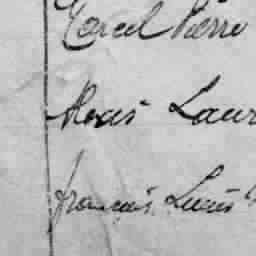 Marcel Pierre
Alexis Laur
françois Louis